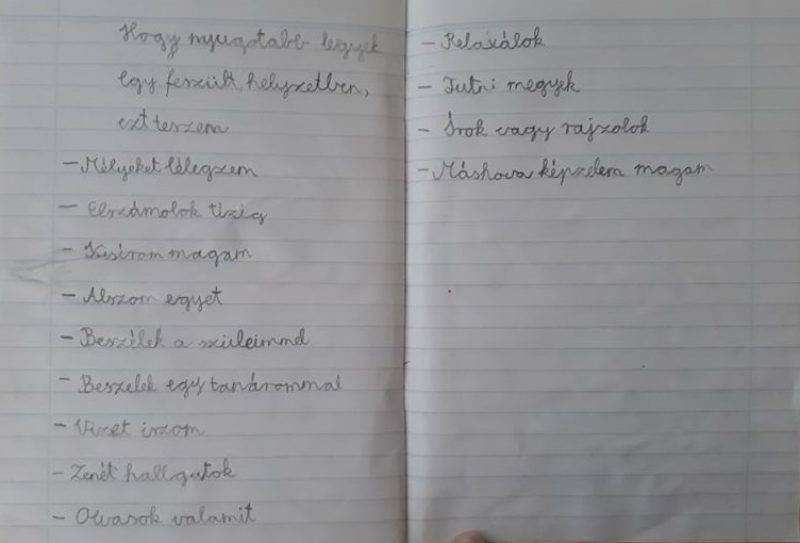 Hogy nyugotabb legyek
egy feszült, helyzetben,
ezt teszem
- Mélyeket lélegzem
- Elszámolok tízig
- Kisírom magam
- Alszom egyet
- Beszélek a szüleimmel
- Beszelek egy tanárommal
- Vizet iszom
- Zenét hallgatok
- Olvasok valamit
- Relaxálok
- Futni megyek
- Írok vagy rajzolok
- Máshova képzelem magam